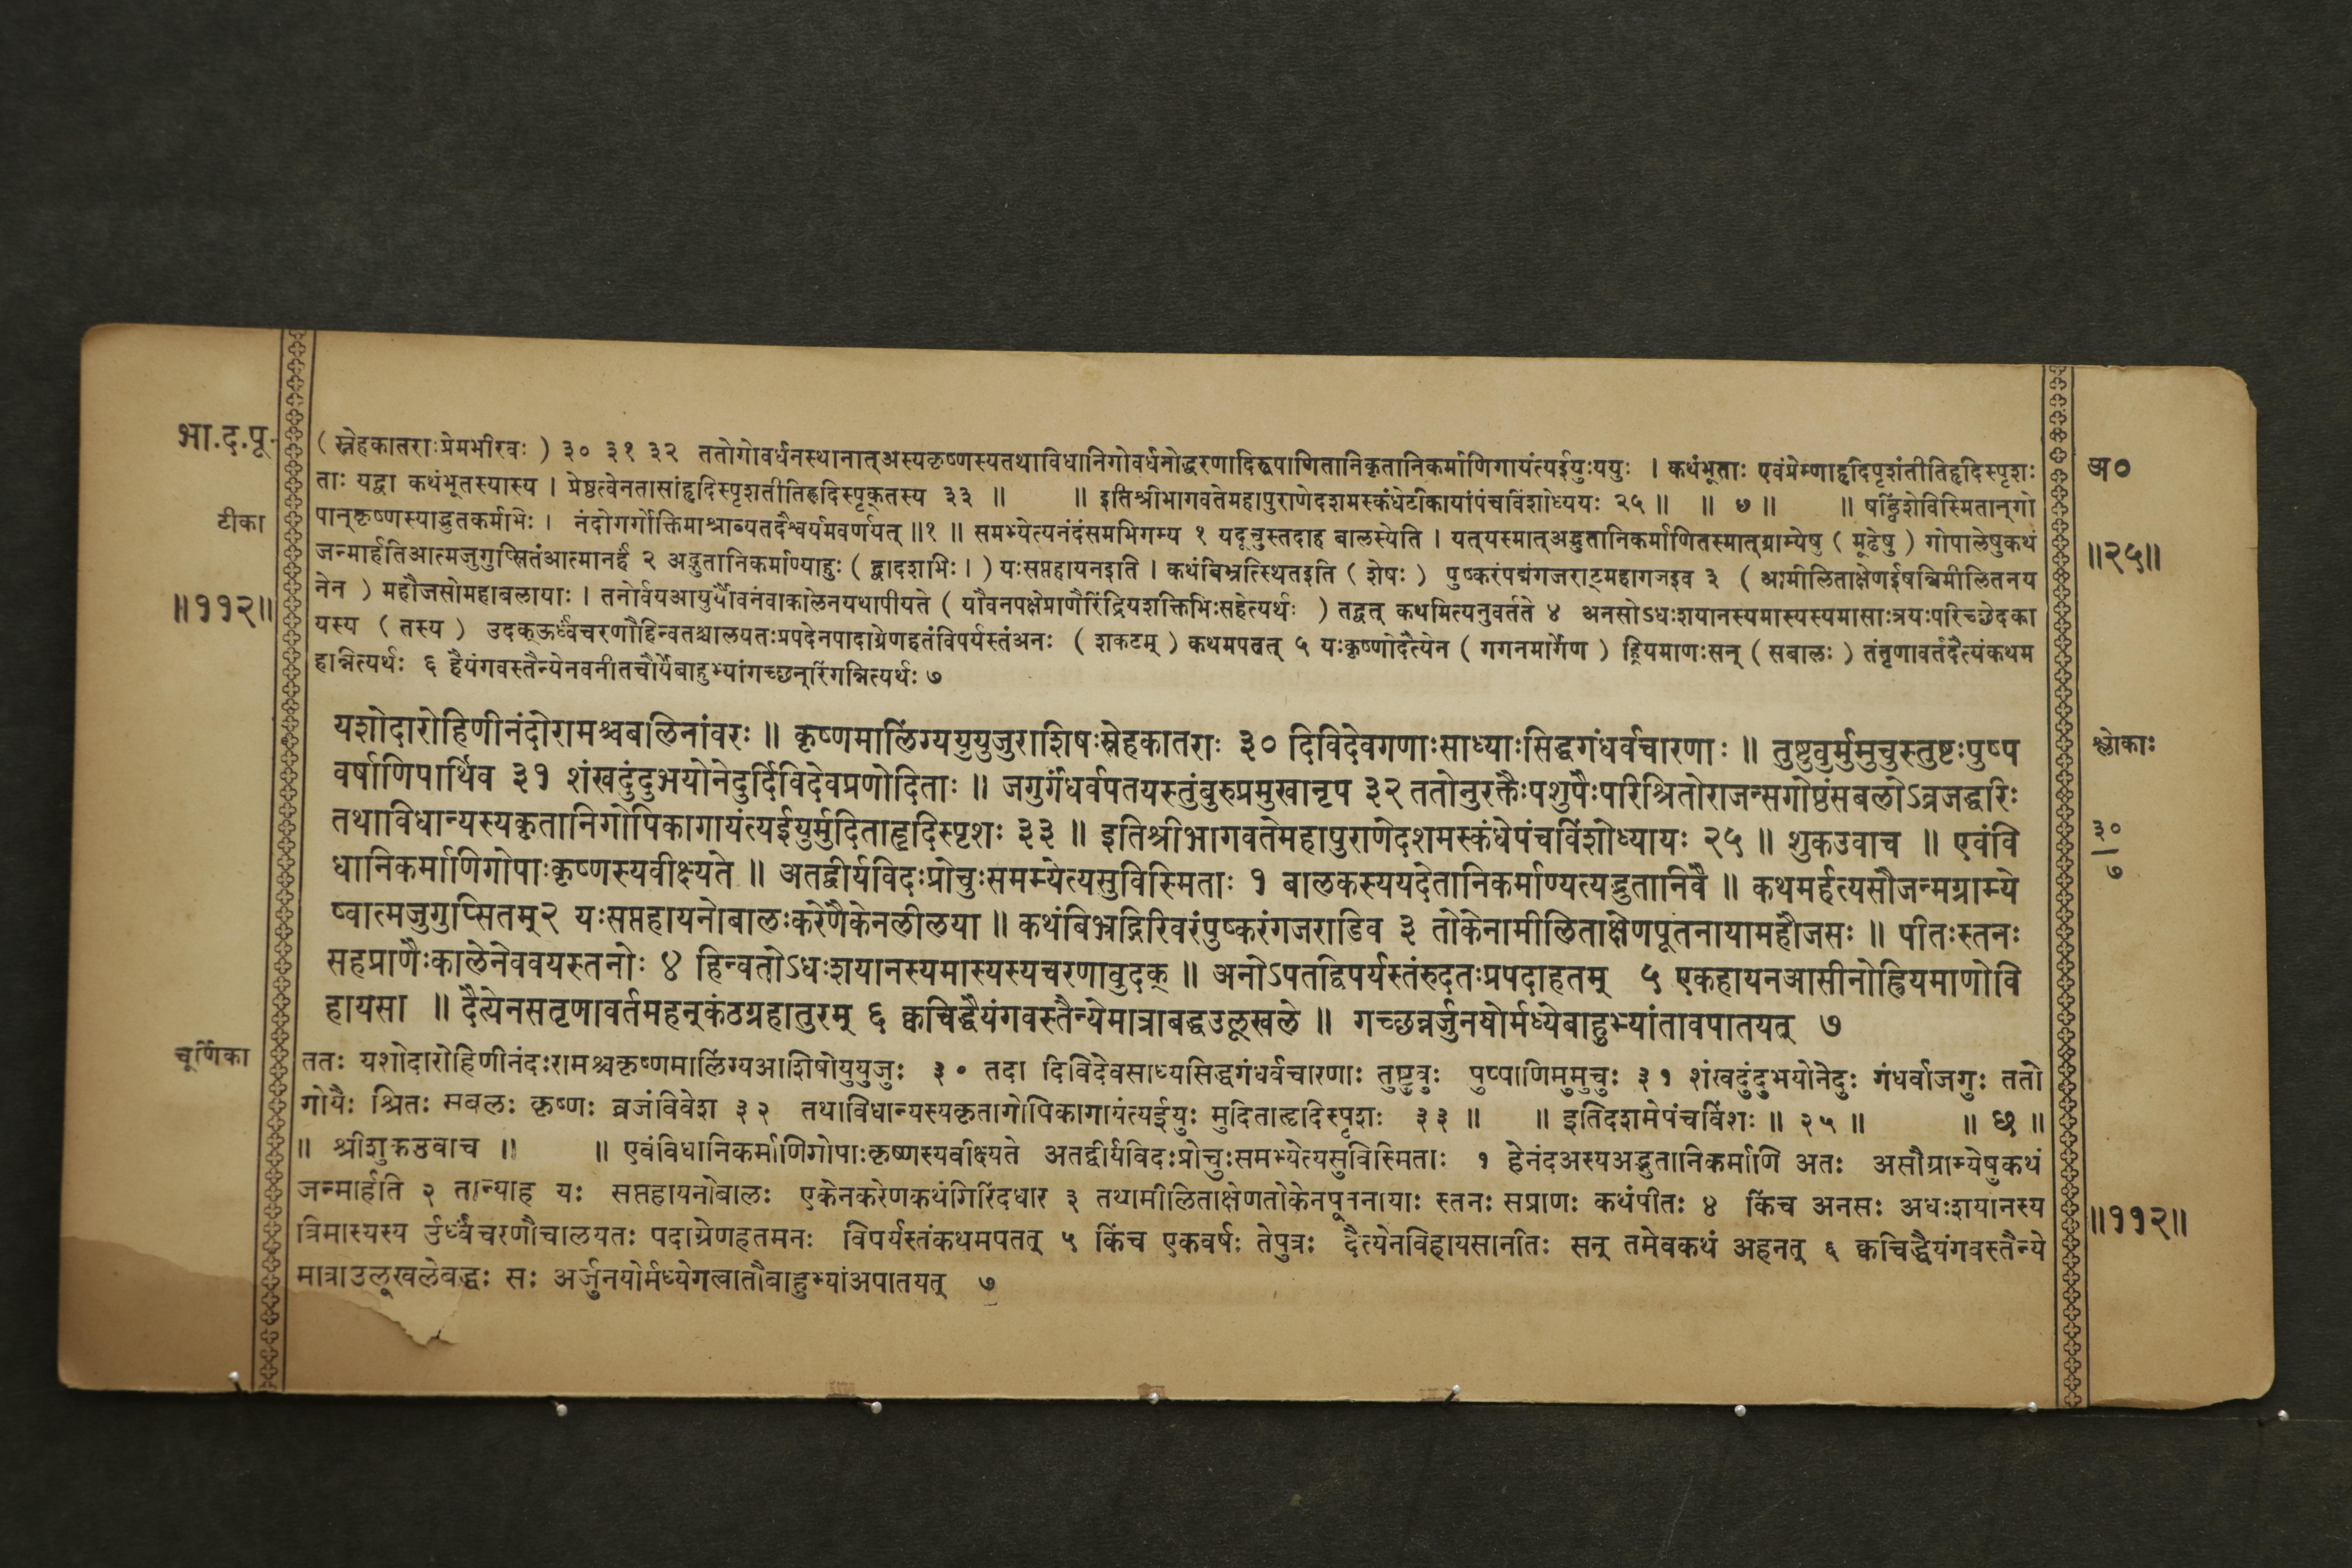 भा.द.पू.
टीका
॥११२॥
(स्नेहकातराःप्रेमभीरवः) ३० ३१ ३२ ततोगोवर्धनस्थानात्अस्यकृष्णस्यतथाविधानिगोवर्धनोद्धरणादिरूपाणितानिकृतानिकर्माणिगायंत्यईयुःययुः । कथंभूताः एवंप्रेम्णाहृदिपृशंतीतिहृदिस्पृशः
ताः यद्वा कथंभूतस्यास्य । प्रेष्ठत्वेनतासांहृदिस्पृशतीतिहृदिस्पृक्तस्य ३३ ॥ ॥ इतिश्रीभागवतेमहापुराणेदशमस्कंधेटीकायांपंचविंशोध्ययः २५ ॥ ॥ ७ ॥ ॥ षड्विंशेविस्मितान्गो
पान्कृष्णस्याद्भुतकर्मभिः । नंदोगर्गोक्तिमाश्राव्यतदैश्वर्यमवर्णयत् ॥१ ॥ समभ्येत्यनंदंसमभिगम्य १ यदूचुस्तदाह बालस्येति । यत्यस्मात्अद्भुतानिकर्माणितस्मात्ग्राम्येषु ( मूढेषु ) गोपालेषुकथं
जन्मार्हतिआत्मजुगुप्सितंआत्मानर्हं २ अद्भुतानिकर्माण्याहुः ( द्वादशभिः । ) यःसप्तहायनइति । कथंबिभ्रत्स्थितइति ( शेषः ) पुष्करंपद्मंगजराट्महागजइव ३ ( आमीलिताक्षेणईषन्निमीलितनय
नेन ) महौजसोमहाबलायाः । तनोर्वयआयुर्यौवनंवाकालेनयथापीयते ( यौवनपक्षेप्राणैरिंद्रियशक्तिभिःसहेत्यर्थः ) तद्वत् कथमित्यनुवर्तते ४ अनसोऽधःशयानस्यमास्यस्यमासाःत्रयःपरिच्छेदका
यस्य ( तस्य ) उदक्ऊर्ध्वंचरणौहिन्वतश्चालयतःप्रपदेनपादाग्रेणहतंविपर्यस्तंअनः ( शकटम् ) कथमपतत् ५ यःकृष्णोदैत्येन ( गगनमार्गेण ) ह्रियमाणःसन् ( सबालः ) तंतृणावर्तदैत्यंकथम
हान्नित्यर्थः ६ हैयंगवस्तैन्येनवनीतचौर्येबाहुभ्यांगच्छन्रिंगन्नित्यर्थः ७
यशोदारोहिणीनंदोरामश्चबलिनांवरः ॥ कृष्णमालिंग्ययुयुजुराशिषःस्नेहकातराः ३० दिविदेवगणाःसाध्याःसिद्धगंधर्वचारणाः ॥ तुष्टुवुर्मुमुचुस्तुष्टःपुष्प
वर्षाणिपार्थिव ३१ शंखदुंदुभयोनेदुर्दिविदेवप्रणोदिताः ॥ जगुर्गंधर्वपतयस्तुंबुरुप्रमुखानृप ३२ ततोनुरक्तैःपशुपैःपरिश्रितोराजन्सगोष्ठंसबलोऽव्रजद्धरिः
तथाविधान्यस्यकृतानिगोपिकागायंत्यईयुर्मुदिताहृदिस्पृशः ३३ ॥ इतिश्रीभागवतेमहापुराणेदशमस्कंधेपंचविंशोध्यायः २५ ॥ शुकउवाच ॥ एवंवि
धानिकर्माणिगोपाःकृष्णस्यवीक्ष्यते ॥ अतद्वीर्यविदःप्रोचुःसमभ्येत्यसुविस्मिताः १ बालकस्ययदेतानिकर्माण्यत्यद्भुतानिवै ॥ कथमर्हत्यसौजन्मग्राम्ये
ष्वात्मजुगुप्सितम्२ यःसप्तहायनोबालःकरेणैकेनलीलया ॥ कथंबिभ्रद्गिरिवरंपुष्करंगजराडिव ३ तोकेनामीलिताक्षेणपूतनायामहौजसः ॥ पीतःस्तनः
सहप्राणैःकालेनेववयस्तनोः ४ हिन्वतोऽधःशयानस्यमास्यस्यचरणावुदक् ॥ अनोऽपतद्विपर्यस्तंरुदतःप्रपदाहतम् ५ एकहायनआसीनोह्रियमाणोवि
हायसा ॥ दैत्येनसतृणावर्तमहन्कंठग्रहातुरम् ६ क्वचिद्धैयंगवस्तैन्येमात्राबद्धउलूखले ॥ गच्छन्नर्जुनयोर्मध्येबाहुभ्यांतावपातयत् ७
चूर्णिका
ततः यशोदारोहिणीनंदःरामश्चकृष्णमालिंग्यआशिषोयुयुजुः ३० तदा दिविदेवसाध्यसिद्धगंधर्वचारणाः तुष्टुवुः पुष्पाणिमुमुचुः ३१ शंखदुंदुभयोनेदुः गंधर्वाजगुः ततो
गोपैः श्रितः सबलः कृष्णः व्रजंविवेश ३२ तथाविधान्यस्यकृतागोपिकागायंत्यईयुः मुदिताहृदिस्पृशः ३३ ॥ ॥ इतिदशमेपंचविंशः ॥ २५ ॥ ॥ छ ॥
॥ श्रीशुकउवाच ॥ ॥ एवंविधानिकर्माणिगोपाःकृष्णस्यवीक्ष्यते अतद्वीर्यविदःप्रोचुःसमभ्येत्यसुविस्मिताः १ हेनंदअस्यअद्भुतानिकर्माणि अतः असौग्राम्येषुकथं
जन्मार्हति २ तान्याह यः सप्तहायनोबालः एकेनकरेणकथंगिरिंदधार ३ तथामीलिताक्षेणतोकेनपूतनायाः स्तनः सप्राणः कथंपीतः ४ किंच अनसः अधःशयानस्य
त्रिमास्यस्य उर्ध्वंचरणौचालयतः पदाग्रेणहतमनः विपर्यस्तंकथमपतत् ५ किंच एकवर्षः तेपुत्रः दैत्येनविहायसानीतः सन् तमेवकथं अहनत् ६ क्वचिद्धैयंगवस्तैन्ये
मात्राउलूखलेबद्धः सः अर्जुनयोर्मध्येगत्वातौबाहुभ्यांअपातयत् ७
अ०
॥२५॥
श्लोकाः
३०
७
॥११२॥